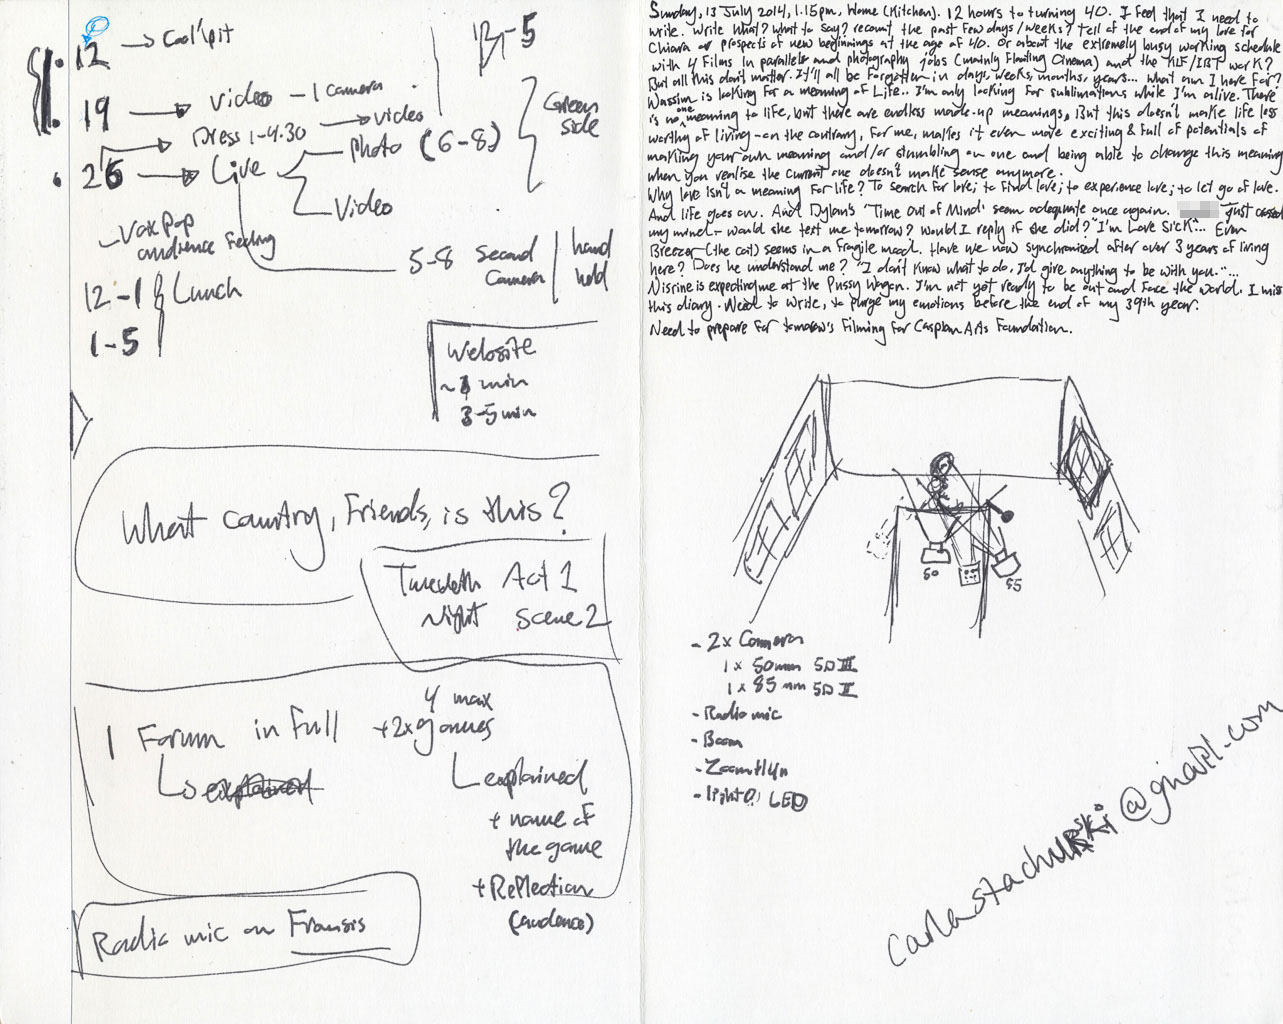 12 → Cockpit
19 → Video - 1 camera
Press 1-4.30 → video
26 → Live
Photo (6-8)
Video
12-5
Green
side
- Vox Pop
audience Feeling
5-8 Second
Camera
hand
hold
12-1 Lunch
1-5
Website
~1 min
3-5 min
What country, Friends, is this?
Twelfth Act 1
Night Scene 2
1 Forum in Full
4 max
+2x games
explained
+ name of
the game
+ Reflection
(audience)
Radio mic on Fransis
Sunday, 13 July 2014, 1.15pm, Home (Kitchen). 12 hours to turning 40. I feel that I need to
write. Write what? What to say? recount the past few days/weeks? Tell of the end of my love for
Chiara or prospects of new beginnings at the age of 40. Or about the extremely busy working schedule
with 4 Films in parallel and photography jobs (mainly Floating Cinema) and the KLF/IBT work?
But all this don't matter. It'll all be forgotten in days, weeks, months, years... What am I here for?
Wassim is looking for a meaning of Life.. I'm only looking for sublimations while I'm alive. There
is no one meaning to life, but there are endless made-up meanings, But this doesn't make life less
worthy of living - on the contrary, For me, makes it even more exciting & full of potentials of
making your own meaning and/or stumbling on one and being able to change this meaning
when you realise the current one doesn't make sense anymore.
Why love isn't a meaning for life? To search for love; to find love; to experience love; to let go of love.
And life goes on. And Dylan's 'Time Out of Mind' seem adequate once again. just crossed
my mind - would she text me tomorrow? Would I reply if she did? "I'm Love Sick"... Even
Breezer (the cat) seems in a fragile mood. Have we now synchronised after over 3 years of living
here? Does he understand me? "I don't know what to do, I'd give anything to be with you."...
Nisrine is expecting me at the Pussy Wagon. I'm not yet ready to be out and face the world. I miss
this diary. Need to write, to purge my emotions before the end of my 39th year.
Need to prepare for tomorrow's Filming for Caspian Arts Foundation.
50
85
- 2x Camera
1 x 50mm 5D III
1 x 85mm 5D II
- Radio mic
- Boom
- Zoom H4n
- light LED
carlastachurski@gmail.com